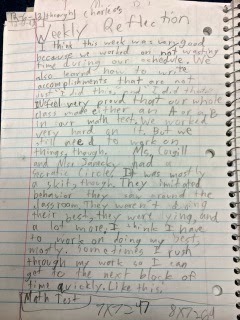 charles
Weekly Reflection
I think this work was very good
because we worked on not wasting
time during our schedule. We
also learned how to write
accomplishments that are not
just I did this, and I did that.
I feel very proud that our whole
class made either an A or a B
in our math test. We worked
very hard on it. But we
still need to work on
things, though. Ms. Cowgill
and Mrs. had a
Socratic Circle. It was mostly
a skit, though. They imitated
behavior they saw around the
classroom. They weren't doing
their best, they were lying, and
a lot more. I think I have
to work on doing my best,
mostly. Sometimes I rush
through my work so I can
get to the next block of
time quickly. Like this.
Math Test